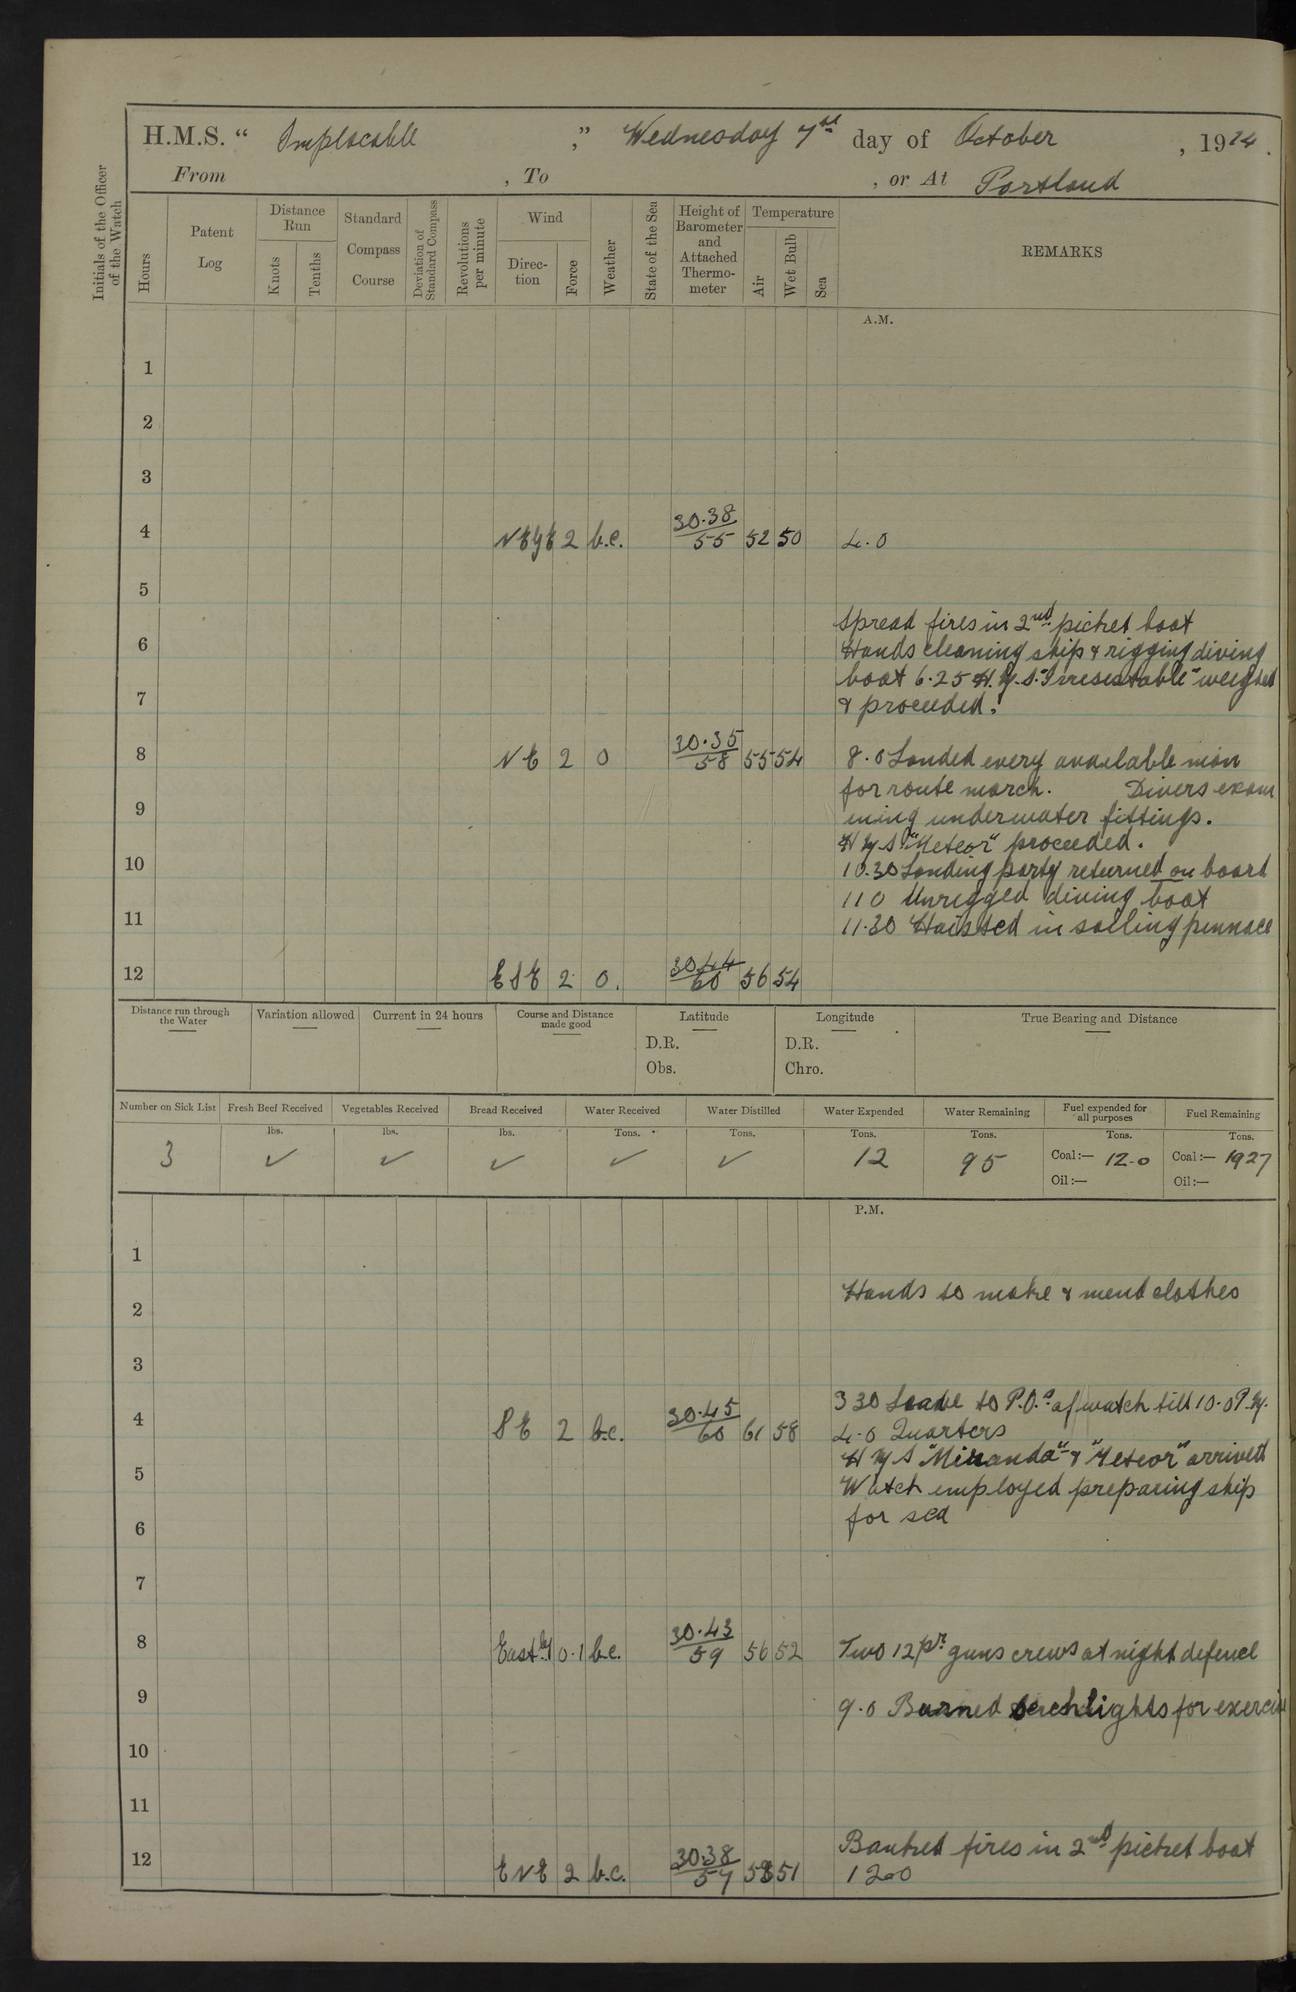 H.M.S. " Implacable ," Wednesday 7th day of October , 1914.
From , To , or At Portland
Initials of the Officer of the Watch
Hours
Patent Log
Distance Run
Knots
Tenths
Standard Compass Course
Deviation of Standard Compass
Revolutions per minute
Wind
Direc-tion
Force
Weather
State of the Sea
Height of Barometer and Attached Thermo-meter
Temperature
Air
Wet Bulb
Sea
REMARKS
A.M.
1
2
3
4 NEyE 2 b.c. 30.38/55 52 50 4.0
5
Spread fires in 2nd picket boat
6 Hands cleaning ship & rigging diving
boat 6.25 H.M.S. "Irresestable" weighed
7 & proceeded.
8 NE 2 o 30.35/58 55 54 8.0 Landed every available man
for route march. Divers exam
9 ining underwater fittings.
H M S "Meteor" proceeded.
10 10.30 Landing party returned on board
11 0 Unrigged diving boat
11 11.30 Hoisted in sailing pinnace
12 ESE 2 o. 30.44/60 56 54
Distance run through the Water
Variation allowed
Current in 24 hours
Course and Distance made good
Latitude
D.R.
Obs.
Longitude
D.R.
Chro.
True Bearing and Distance
Number on Sick List
Fresh Beef Received
Vegetables Received
Bread Received
Water Received
Water Distilled
Water Expended
Water Remaining
Fuel expended for all purposes
Fuel Remaining
lbs. lbs. lbs. Tons. Tons. Tons. Tons. Tons. Tons.
3 ✓ ✓ ✓ ✓ ✓ 12 95 Coal:— 12.0 Coal:— 1927
Oil:— Oil:—
P.M.
1
Hands to make & mend clothes
2
3
3 30 Leave to P.O.s of watch till 10.0 P.M.
4 SE 2 b.c. 30.45/60 61 58 4.0 Quarters
H M S "Miranda" & "Meteor" arrived
5 Watch employed preparing ship
for sea
6
7
8 Eastly 0.1 b.c. 30.43/59 56 52 Two 12pr guns crews at night defence
9 9.0 Burned serchlights for exercise
10
11
Banked fires in 2nd picket boat
12 ENE 2 b.c. 30.38/57 51 12.0